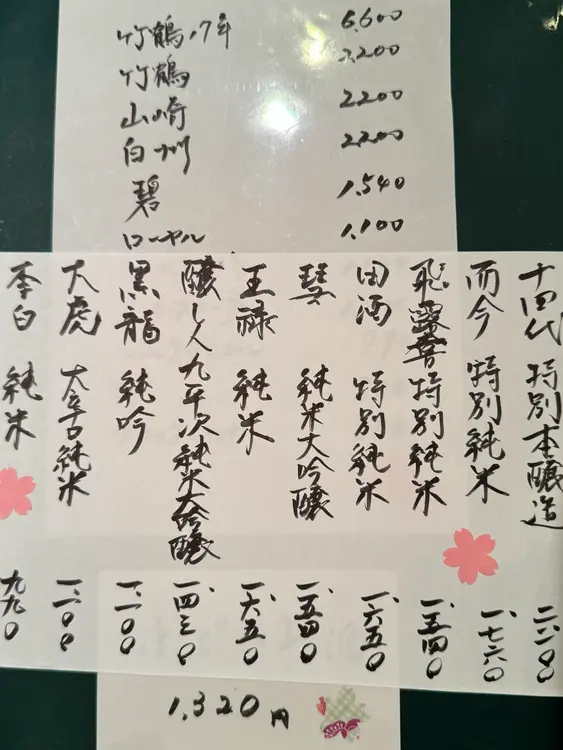 竹鶴17年 6,600
竹鶴 2,200
山崎 2200
白州 2,200
碧 1,540
ローヤル 1,100
十四代 特別本醸造
而今 特別純米 一、七六〇
飛露喜 特別純米 一、五四〇
田酒 特別純米 一、六五〇
純米大吟醸 一、五四〇
王禄 純米 一、六五〇
醸し人九平次 純米大吟醸 一、四三〇
黒龍 純吟 一、一〇〇
大虎 大辛口純米 一、一〇〇
李白 純米 九九〇
1,320円